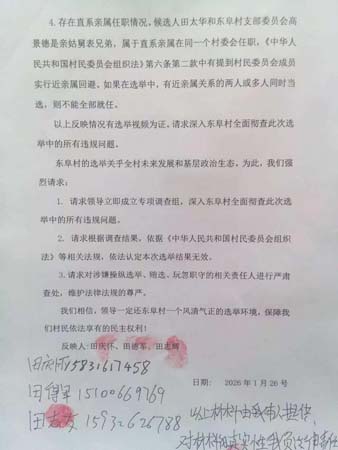 4. 存在直系亲属任职情况，候选人田太华和东阜村支部委员会高
景德是亲姑舅表兄弟，属于直系亲属在同一个村委会任职，《中华人
民共和国村民委员会组织法》第六条第二款中有提到村民委员会成员
实行近亲属回避。如果在选举中，有近亲属关系的两人或多人同时当
选，则不能全部就任。
以上反映情况有选举视频为证。请求深入东阜村全面彻查此次选
举中的所有违规问题。
东阜村的选举关乎全村未来发展和基层政治生态。为此，我们强
烈请求：
1. 请求领导立即成立专项调查组，深入东阜村全面彻查此次选举
中的所有违规问题。
2. 请求根据调查结果，依据《中华人民共和国村民委员会组织
法》等相关法规，依法认定本次选举结果无效。
3.请求对涉嫌操纵选举、贿选、玩忽职守的相关责任人进行严肃
查处，维护法律法规的尊严。
我们相信，领导一定还东阜村一个风清气正的选举环境，保障我
们村民依法享有的民主权利！
反映人：田庆怀、田德军、田志辉
田庆怀15831617458
日期： 2026年1月26号
田德军 15100669769
田志友 15932626788
以上材料由我本人提供，
对材料的真实性我负法律责任